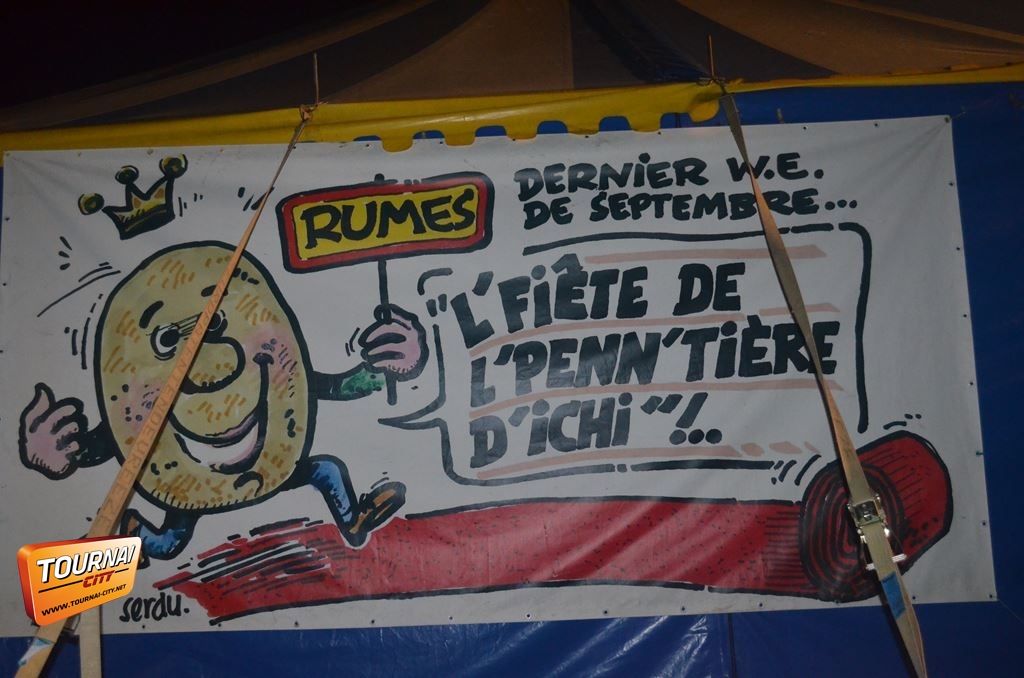 RUMES
DERNIER W.E.
DE SEPTEMBRE...
"L'FIÊTE DE
L'PENN'TIÈRE
D'ICHI"!..
serdu.
TOURNAI
CITY
WWW.TOURNAI-CITY.NET